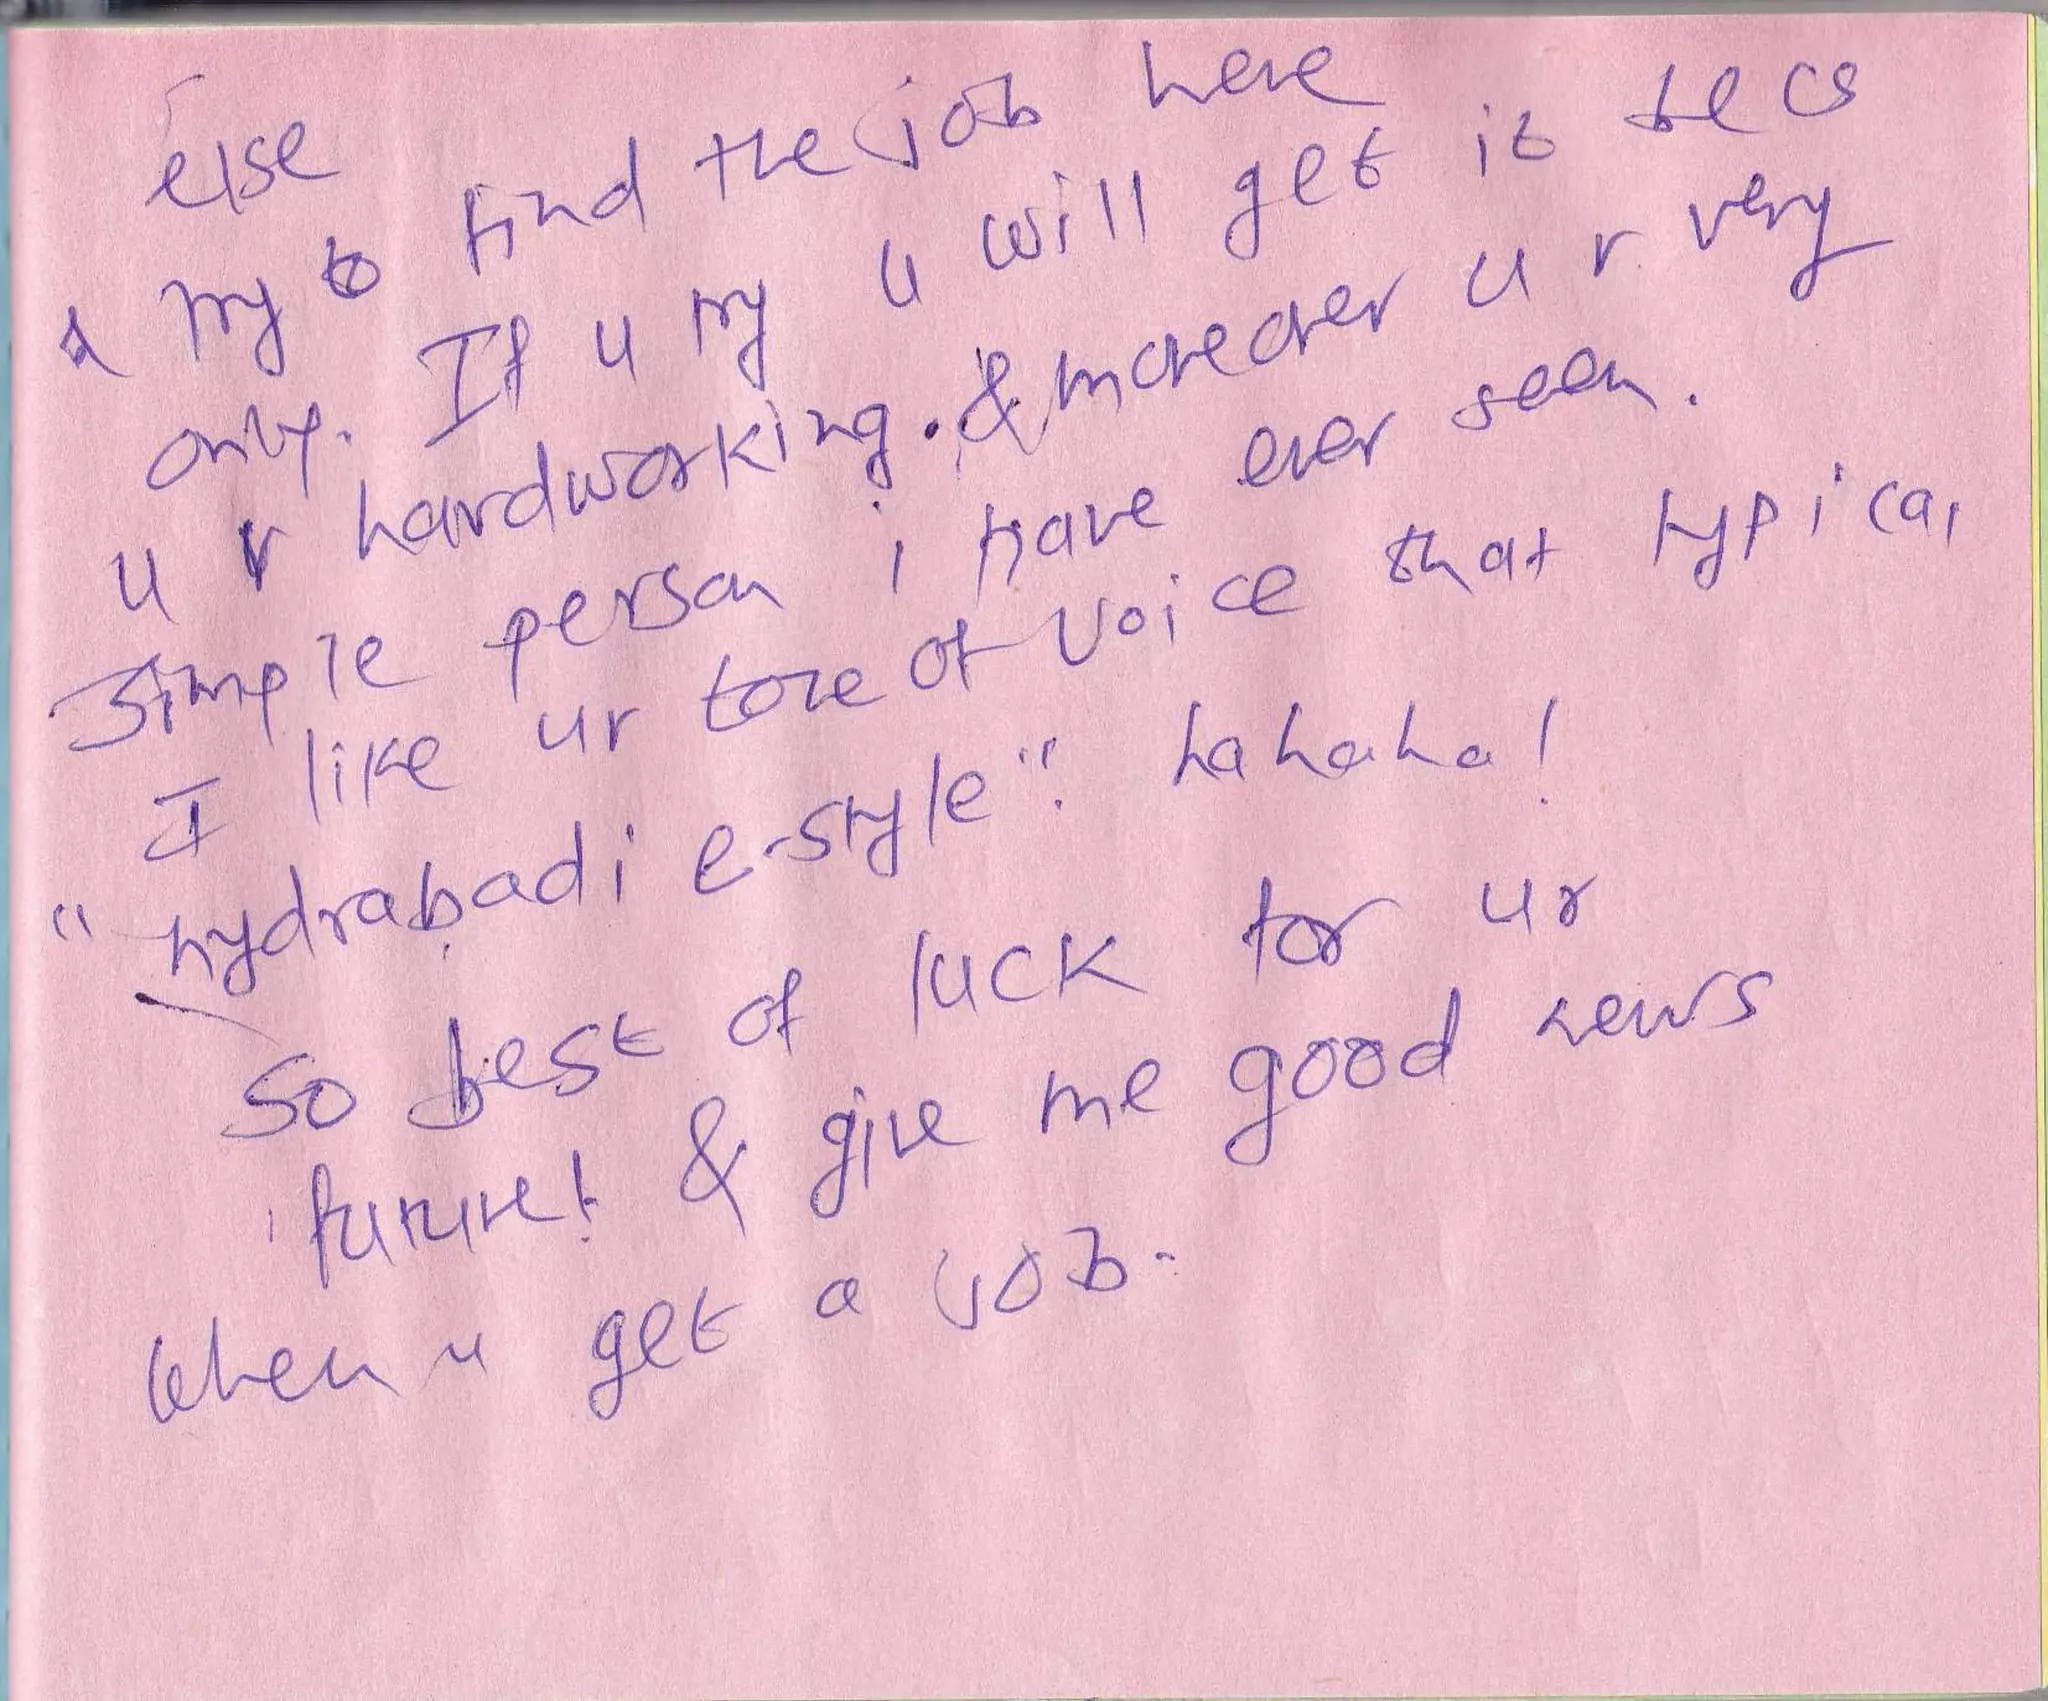 else
& try to find the job here
only. If u try u will get it becs
u r hardworking. & moreover u r very
simple person i have ever seen.
I like ur tone of voice that typical
"hydrabadi e-style". hahaha!
so best of luck for ur
future! & give me good news
when u get a job.